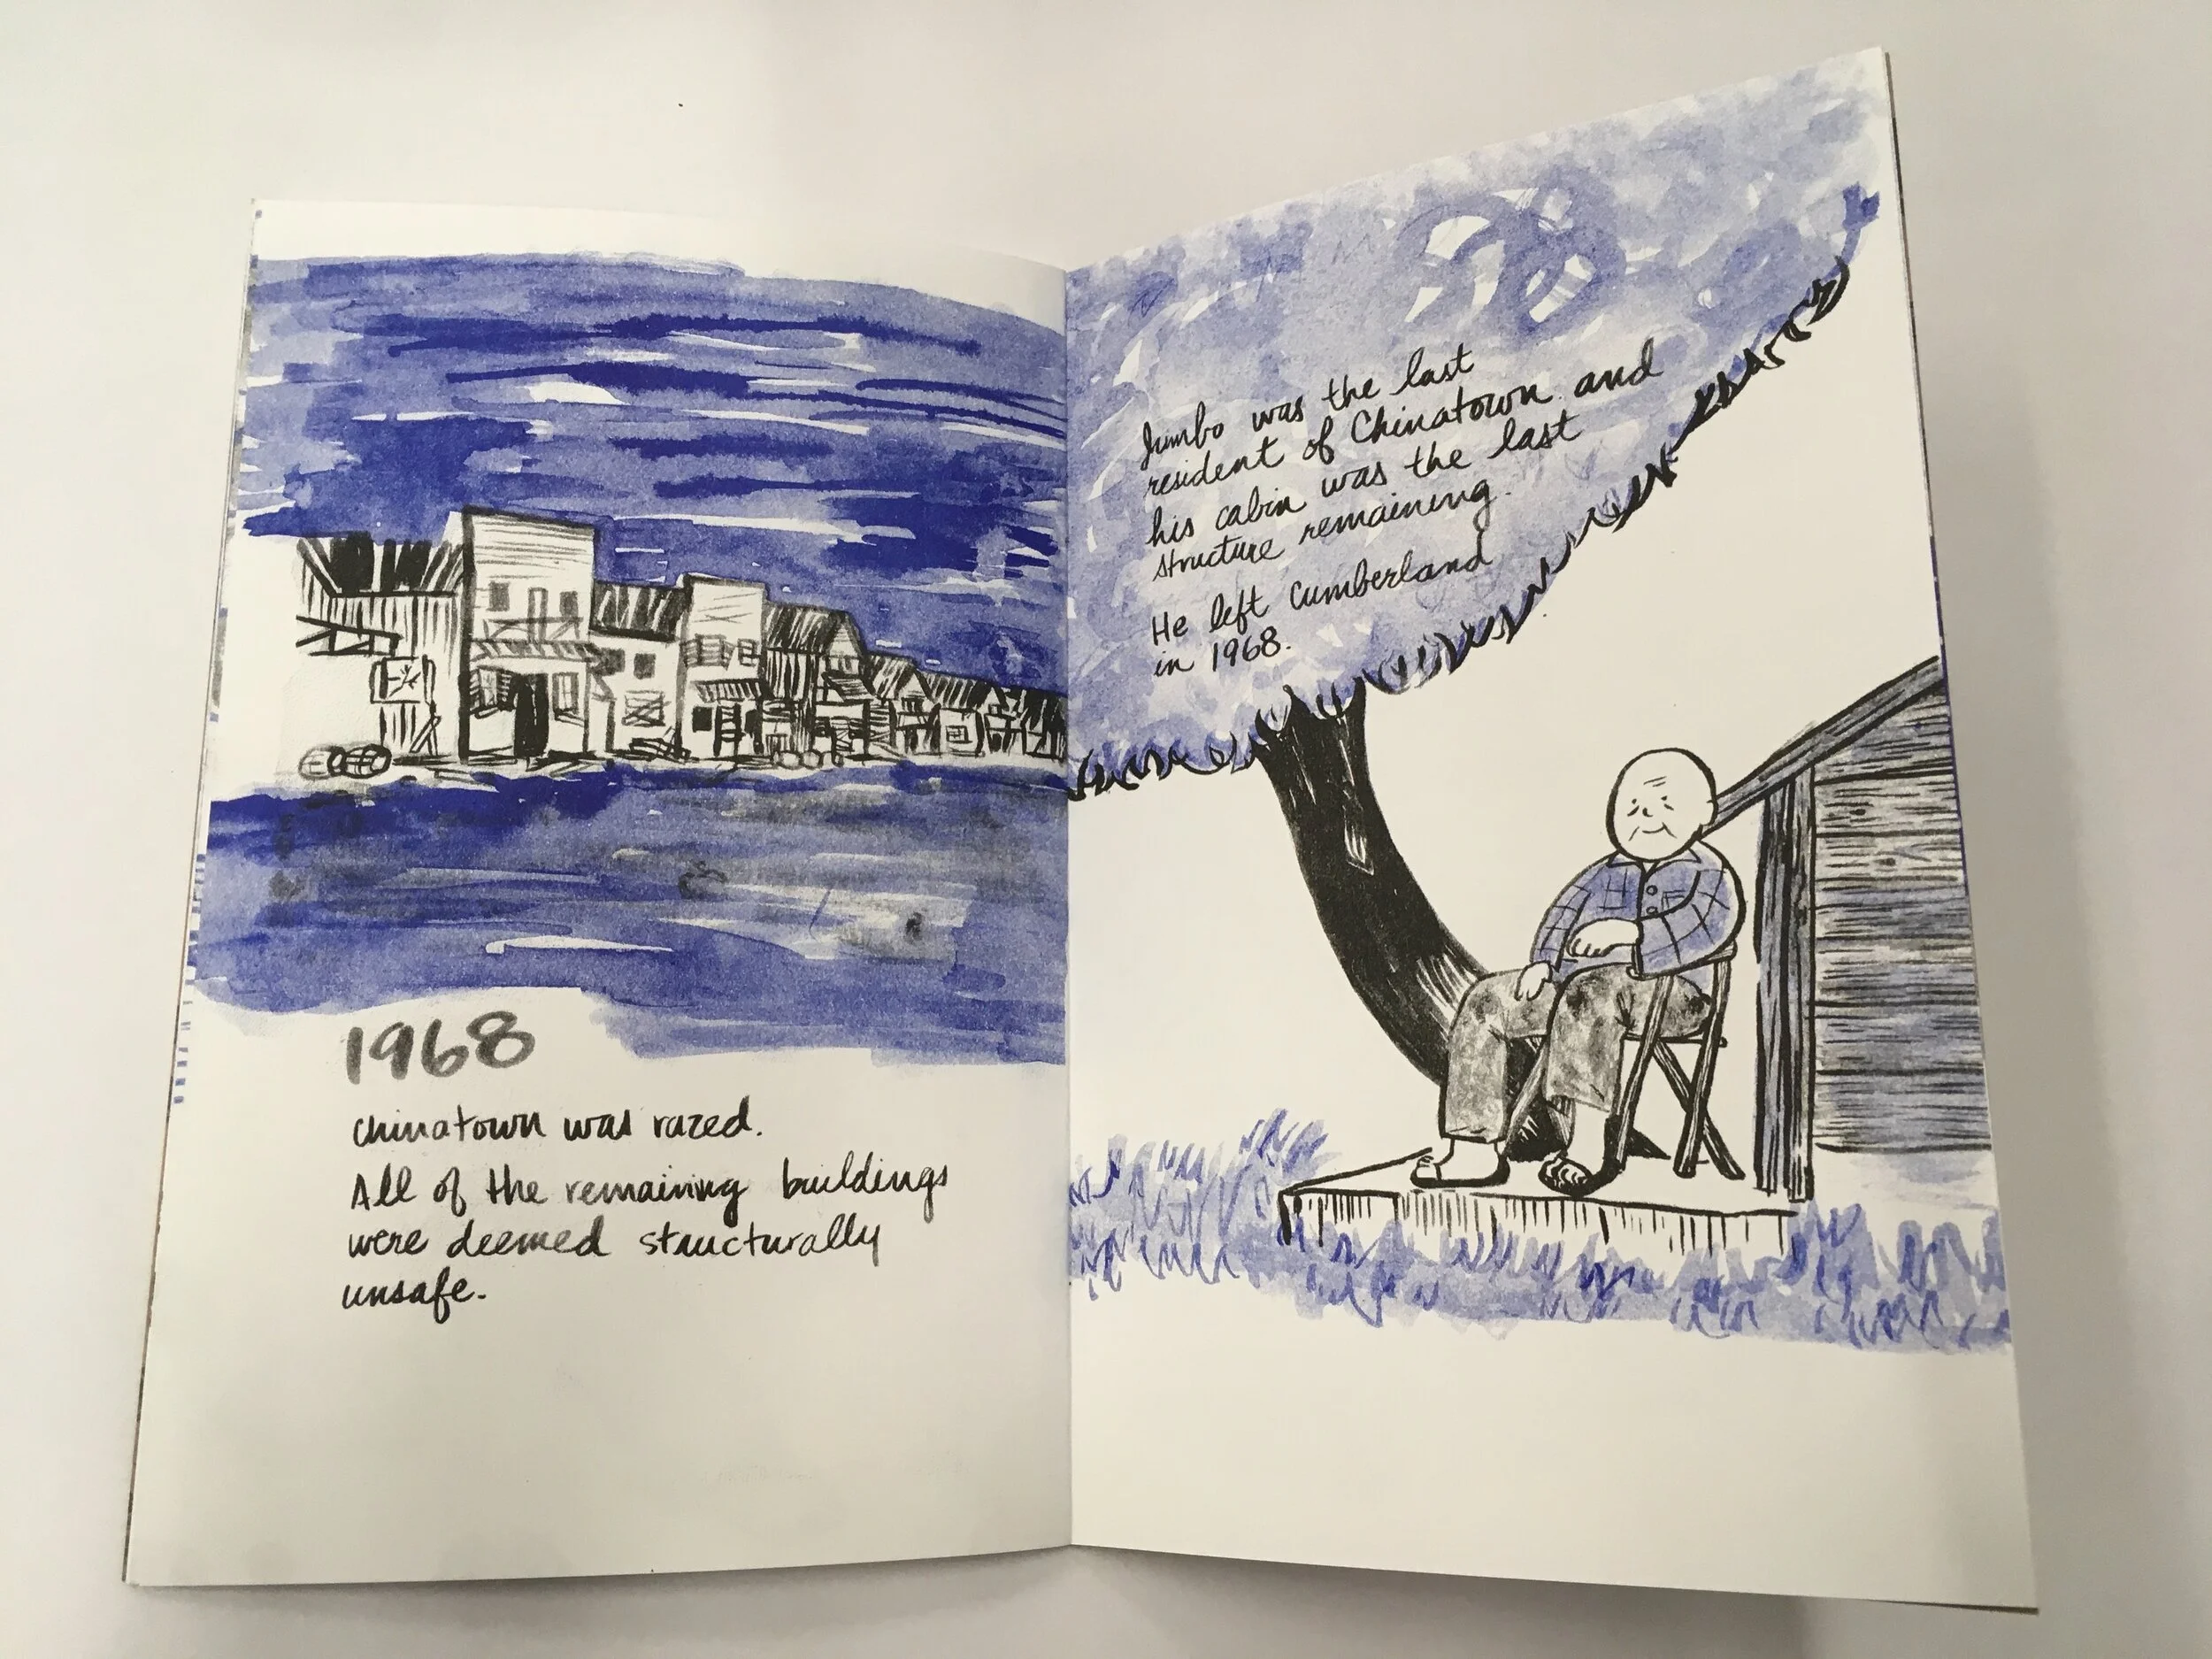 1968
Chinatown was razed.
All of the remaining buildings
were deemed structurally
unsafe.
Jumbo was the last
resident of Chinatown and
his cabin was the last
structure remaining.
He left Cumberland
in 1968.